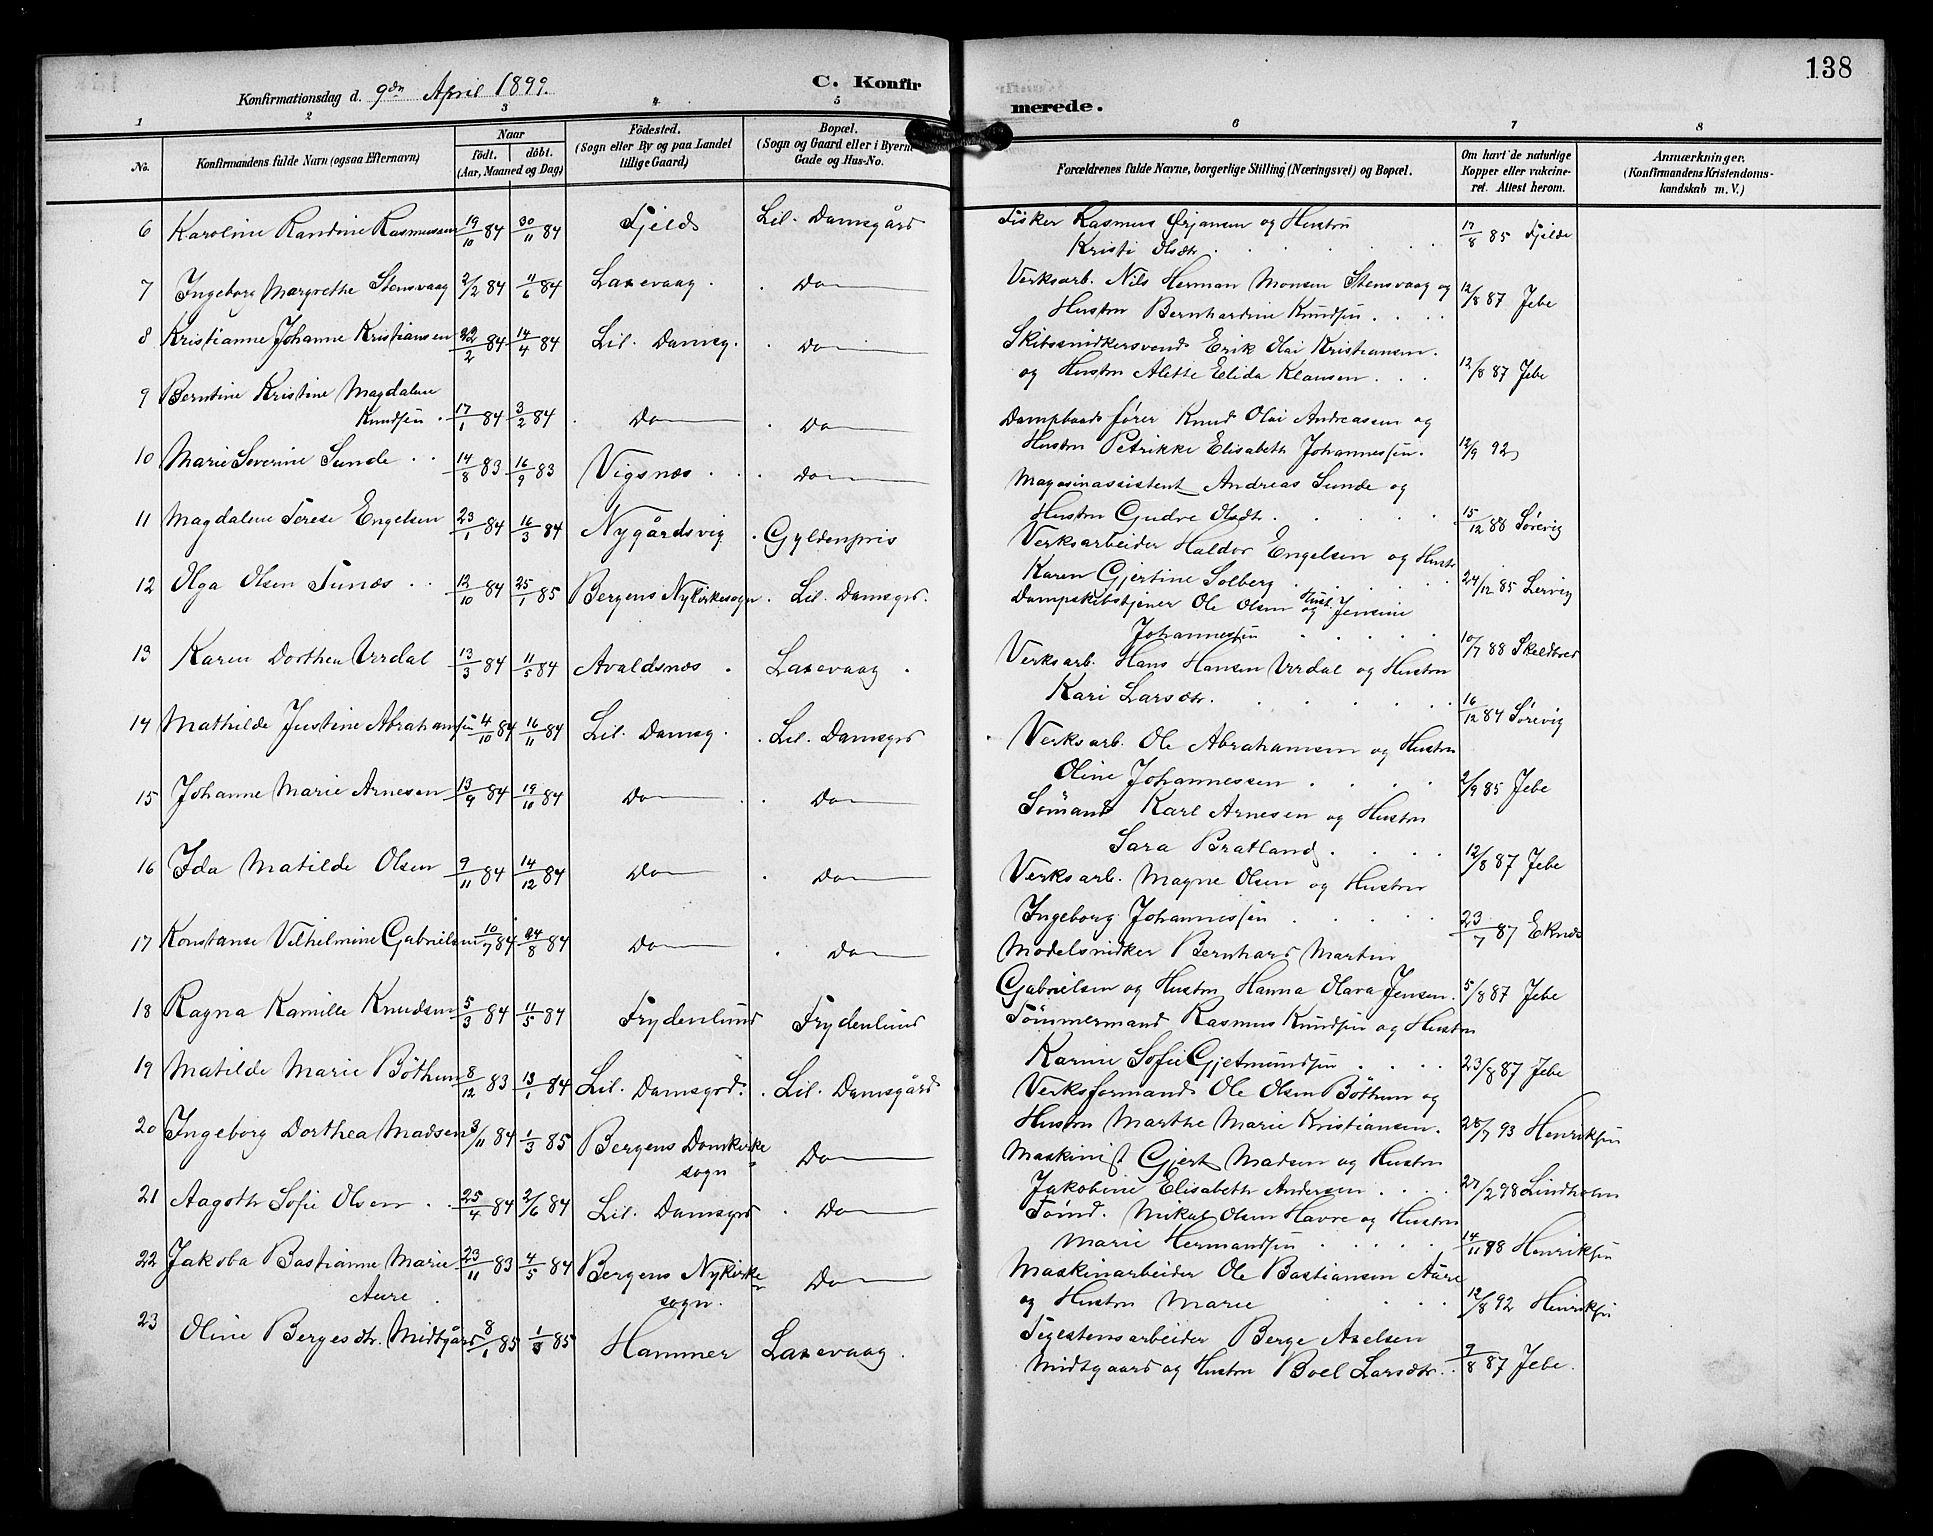 138
Konfirmationsdag d. 9de April 1899.
C. Konfirmerede.
1 2 3 4 5 6 7 8
No.
Konfirmandens fulde Navn (ogsaa Efternavn)
Naar
födt. döbt.
(Aar, Maaned og Dag)
Födested.
(Sogn eller By og paa Landet
tillige Gaard)
Bopæl.
(Sogn og Gaard eller i Byerne
Gade og Hus-No.
Forældrenes fulde Navne, borgerlige Stilling (Næringsvei) og Bopæl.
Om havt de naturlige
Kopper eller vakcine-
ret. Attest herom.
Anmærkninger.
(Konfirmandens Kristendoms-
kundskab m. V.)
6 Karoline Randine Rasmussen 19/10 84 30/11 84 Fjeld Lil. Damsgård Fisker Rasmus Ørjansen og Hustru
Kristi Olsdtr. 17/8 85 Fjelde
7 Ingeborg Margrethe Stensvaag 2/2 84 11/6 84 Laxevaag. Do Verksarb. Nils Herman Monsen Stensvaag og
Hustru Bernhardine Knudsen 12/8 87 Jebe
8 Kristianne Johanne Kristiansen 22/2 84 14/4 84 Lil. Damsg. Do Skibssnidkersvend Erik Olai Kristiansen.
og Hustru Alette Elida Klausen 12/8 87 Jebe
9 Berntine Kristine Magdalene
Knudsen 17/1 84 3/2 84 Do Do Dampbaadsfører Knud Olai Andreassen og
Hustru Petrikke Elisabeth Johannessen. 12/9 92
10 Marie Severine Sunde 14/8 83 16/9 83 Vigsnæs Do Magasinassistent Andreas Sunde og
Hustru Gudve Olsdtr. 15/12 88 Sørevig
11 Magdalene Terese Engelsen 23/1 84 16/3 84 Nygårdsvig Gyldenpris Verksarbeider Haldor Engelsen og Hustr
Karen Gjertine Solberg 24/12 85 Lervig
12 Olga Olsen Tunæs 12/10 84 25/1 85 Bergens Nykirkesogn Lil. Damsgrd. Dampskibstjener Ole Olsen og Hust. Jensine
Johannessen 10/7 88
13 Karen Dorthea Urdal 13/3 84 11/5 84 Avaldsnæs Laxevaag Verksarb. Hans Hansen Urdal og Hustru
Kari Larsdtr. 16/12 84 Sørevig
14 Mathilde Justine Abrahamsen 4/10 84 16/11 84 Lil. Damsg. Lil. Damsgrd Verksarb. Ole Abrahamsen og Hustru
Oline Johannessen 2/9 85 Jebe
15 Johanne Marie Arnesen 13/9 84 19/10 84 Do Do Sømand Karl Arnesen og Hustru
Sara Bratland 12/8 87 Jebe
16 Ida Matilde Olsen 9/11 84 14/12 84 Do Do Verksarb. Magne Olsen og Hustru
Ingeborg Johannessen 23/7 87
17 Konstanse Vilhelmine Gabrielsen 10/7 84 24/8 84 Do Do Modelsnidker Bernhard Martin
Gabrielsen og Hustru Hanna Olava Jensen. 5/8 87 Jebe
18 Ragna Kamille Knudsen 5/3 84 11/5 84 Frydenlund Frydenlund Tömmermand Rasmus Knudsen og Hustru
Karine Sofie Gjetmundsen 23/8 87 Jebe
19 Matilde Marie Böthun 8/12 83 13/1 84 Lil. Damsgrd. Lil. Damsgård Verksformand Ole Olsen Böthun og
Hustru Marthe Marie Kristiansen. 28/7 93 Henriksen
20 Ingeborg Dorthea Madsen 3/11 84 1/3 85 Bergens Domkirke
sogn Do Maskinist Gjert Madsen og Hustru
Jakobine Elisabeth Andersen 27/2 98 Lindholm
21 Aagoth Sofie Olsen 25/4 84 2/6 84 Lil. Damsgrd Do Tømd. Mikal Olsen Havre og Hustru
Marie Hermandsen 14/11 98 Henriksen
22 Jakoba Bastianne Marie
Aure 23/11 83 4/5 84 Bergens Nykirke
sogn. Do Maskinarbeider Ole Bastiansen Aure
og Hustru Marie 12/8 92 Henriksen
23 Oline Bergesdtr. Midtgård 8/1 85 1/3 85 Hammer Laxevaag. Tegestensarbeider Berge Axelsen
Midtgaard og Hustru Boel Larsdtr. 9/8 87 Jebe.